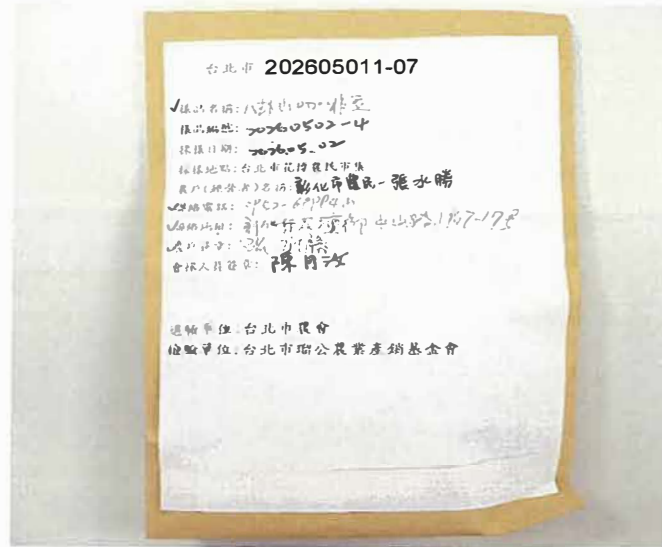 台北市 202605011-07
✓樣品名稱: 八卦山咖啡豆
樣品編號: 20260502-4
採樣日期: 2026.05.02
採樣地點: 台北市花博農民市集
農戶(經營者)名稱: 彰化市農民-張水勝
✓連絡電話:
✓連絡地址: 中山路
✓農戶簽章:
會採人員簽章: 陳月
送驗單位: 台北市農會
檢驗單位: 台北市瑠公農業產銷基金會